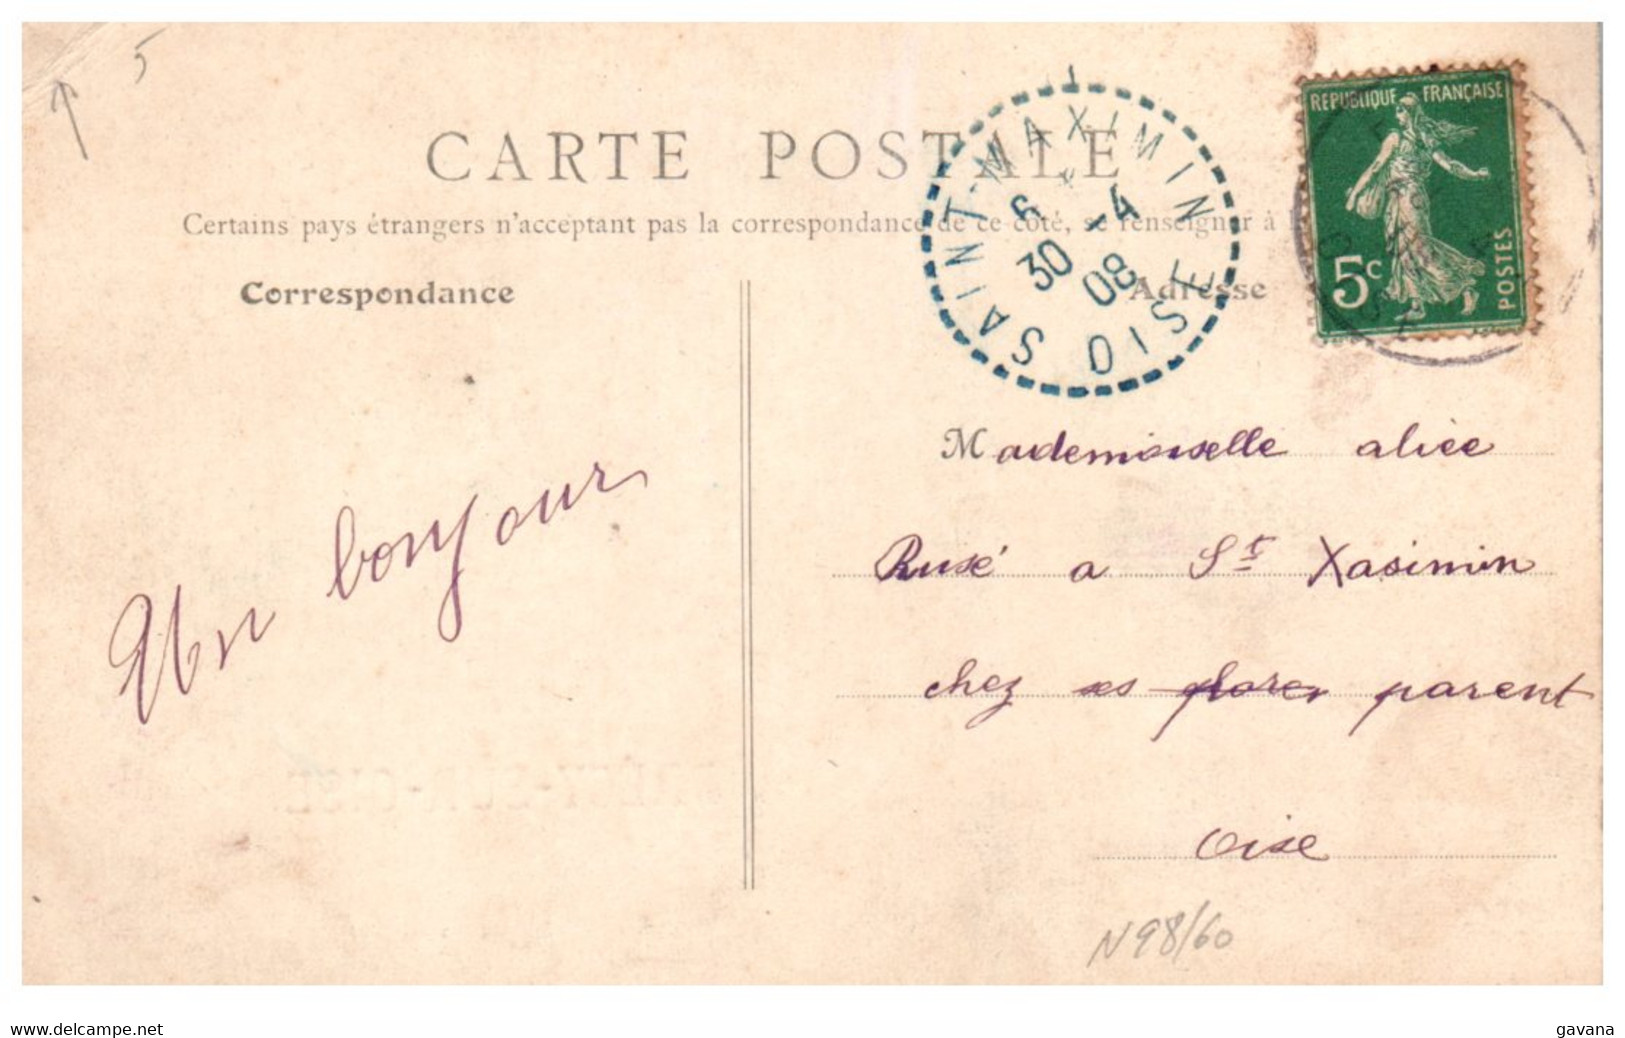 5
CARTE POSTALE
Certains pays étrangers n'acceptant pas la correspondance de ce côté, se renseigner à
Correspondance
Adresse
SAINT-MAXIMIN
6
30 -4
08
OISE
REPUBLIQUE FRANÇAISE
5c
POSTES
Mademoiselle alice
Rusé a St Xasimin
chez ses parent
Oise
Un bonjour
N98/60
www.delcampe.net
gavana